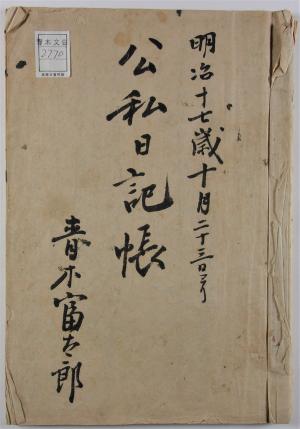 明治十七歳十月二十三日ゟ
公私日記帳
青木富太郎
青木文庫
2770